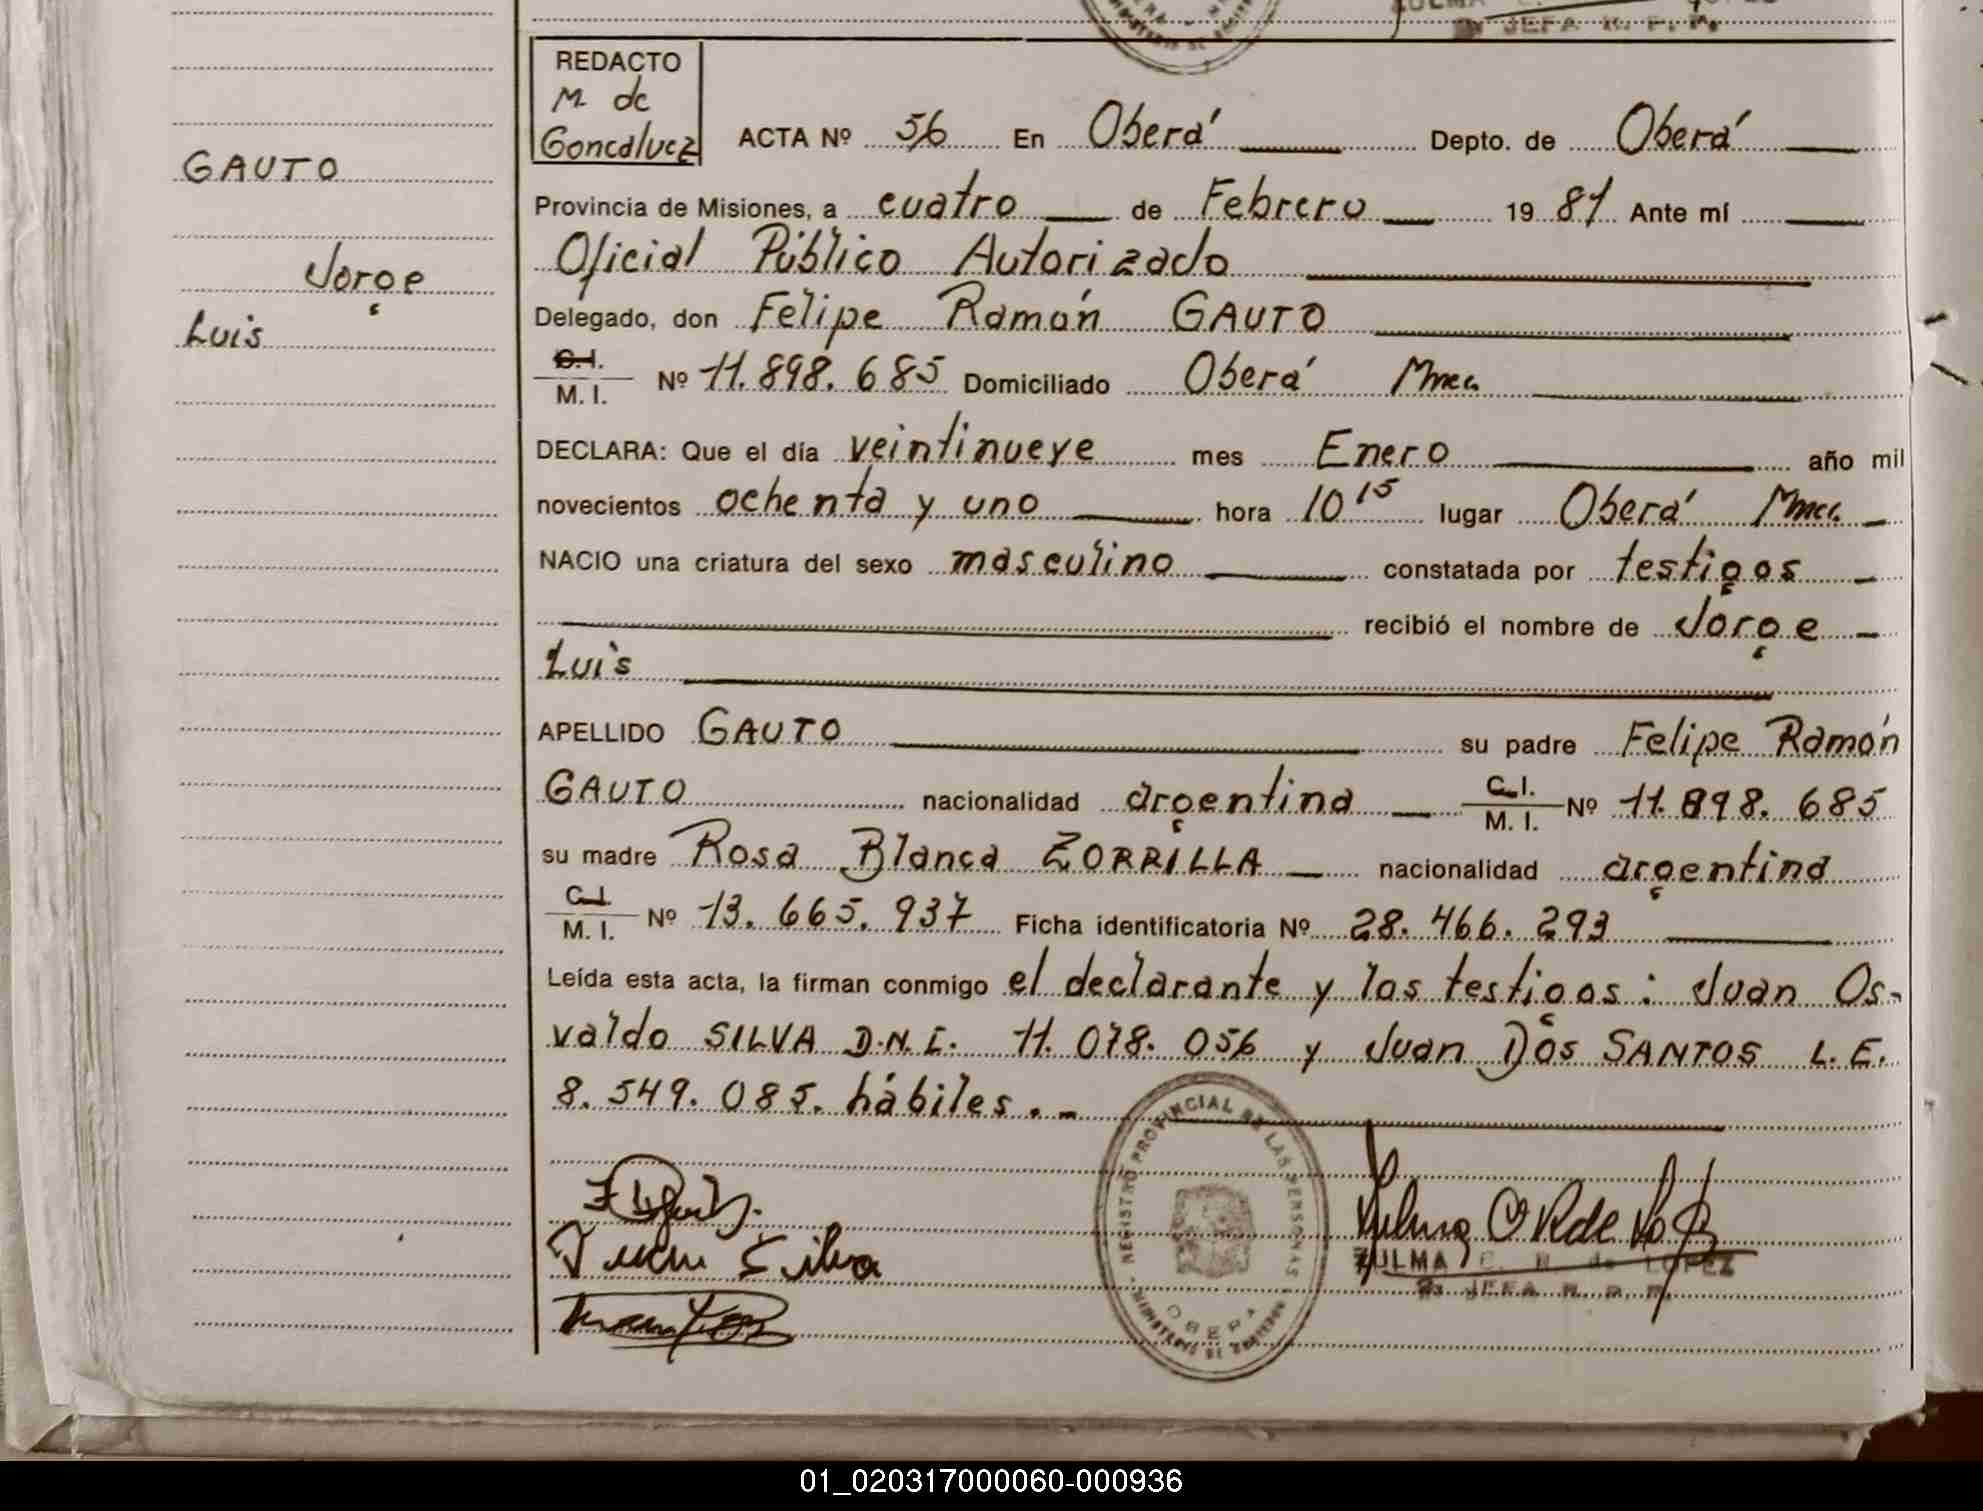 JEFA R. P. P.
REDACTO
M. de
Goncalvez
ACTA Nº 56 En Oberá Depto. de Oberá
GAUTO
Provincia de Misiones, a cuatro de Febrero 1981 Ante mí
Oficial Público Autorizado
Jorge
Delegado, don Felipe Ramón GAUTO
Luis
C.I.
M. I. Nº 11.898.685 Domiciliado Oberá Mnes.
DECLARA: Que el día veintinueve mes Enero año mil
novecientos ochenta y uno hora 10 15 lugar Oberá Mnes.
NACIO una criatura del sexo masculino constatada por testigos
recibió el nombre de Jorge
Luis
APELLIDO GAUTO su padre Felipe Ramón
GAUTO nacionalidad argentina C.I. M. I. Nº 11.898.685
su madre Rosa Blanca ZORRILLA nacionalidad argentina
C.I. M. I. Nº 13.665.937 Ficha identificatoria Nº 28.466.293
Leída esta acta, la firman conmigo el declarante y los testigos: Juan Os-
valdo SILVA D.N.I. 11.078.056 y Juan DOS SANTOS L.E.
8.549.085. hábiles.-
REGISTRO PROVINCIAL DE LAS PERSONAS
OBERA
Juan Silva
ZULMA C. R. de LOPEZ
JEFA R. P. P.
01_020317000060-000936